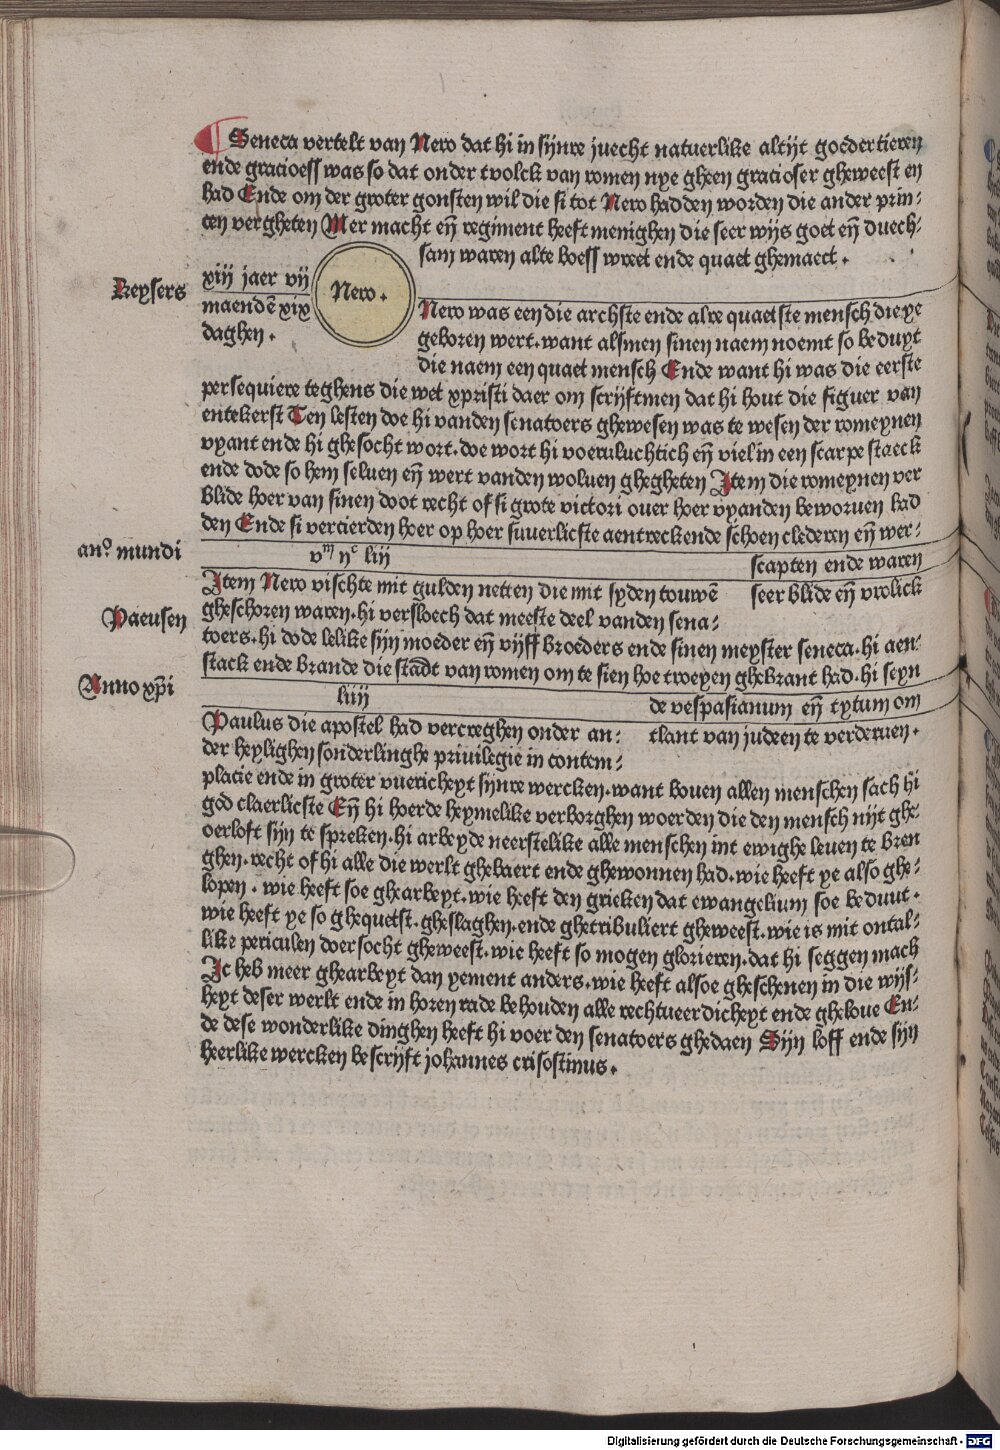 Seneca vertelt van Nero dat hi in sijnre juecht natuerlike altijt goedertieren
ende gracioess was so dat onder tvolck van romen nye gheen gracioser gheweest en
had Ende om der groter gonsten wil die si tot Nero hadden worden die ander prin-
cen vergheten Mer macht eñ regiment heeft menighen die seer wijs goet eñ duech-
sam waren alte boess wreet ende quaet ghemaect.
Keysers
xiij jaer vij
maendē xix
daghen.
Nero.
Nero was een die archste ende alre quaetste mensch die ye
geboren wert. want alsmen sinen naem noemt so beduyt
die naem een quaet mensch Ende want hi was die eerste
persequiere teghens die wet xpristi daer om scrijftmen dat hi hout die figuer van
entekerst Ten lesten doe hi vanden senatoers ghewesen was te wesen der romeynen
vyant ende hi ghesocht wort. doe wort hi voervluchtich eñ viel in een scarpe staeck
ende dode so hem seluen eñ wert vanden woluen ghegheten Item die romeynen ver
blide hoer van sinen doot recht of si grote victori ouer hoer vyanden beworuen had
den Ende si vercierden hoer op hoer suuerlicste aentreckende schoen clederen eñ wer-
scapten ende waren
seer blide eñ vrolick
anº mundi
vᵐ ɳᶜ liij
Item Nero vischte mit gulden netten die mit syden touwē
gheschoren waren. hi versloech dat meeste deel vanden sena-
toers. hi dode lelike sijn moeder eñ vijff broeders ende sinen meyster seneca. hi aen-
stack ende brande die stadt van romen om te sien hoe troeyen ghebrant had. hi seyn
de vespasianum eñ tytum om
tlant van judeen te verderuen.
Paeusen
Anno xp̄i
liiij
Paulus die apostel had vercreghen onder an-
der heylighen sonderlinghe priuilegie in contem-
placie ende in groter vuericheyt sijnre wercken. want bouen allen menschen sach hi
god claerlicste Eñ hi hoerde heymelike verborghen woerden die den mensch nijt ghe
oerloft sijn te spreken. hi arbeyde neerstelike alle menschen int ewighe leuen te bren
ghen. recht of hi alle die werlt ghebaert ende ghewonnen had. wie heeft ye also ghe-
lopen. wie heeft soe ghearbeyt. wie heeft den grieken dat ewangelium soe beduut.
wie heeft ye so ghequetst. gheslaghen. ende ghetribuliert gheweest. wie is mit ontal-
like periculen doersocht gheweest. wie heeft so mogen glorieren. dat hi seggen mach
Ic heb meer ghearbeyt dan yement anders. wie heeft alsoe gheschenen in die wijs-
heyt deser werlt ende in horen rade behouden alle rechtueerdicheyt ende gheloue En-
de dese wonderlike dinghen heeft hi voer den senatoers ghedaen Sijn loff ende sijn
heerlike wercken bescrijft johannes crisostimus.
Digitalisierung gefördert durch die Deutsche Forschungsgemeinschaft - DFG